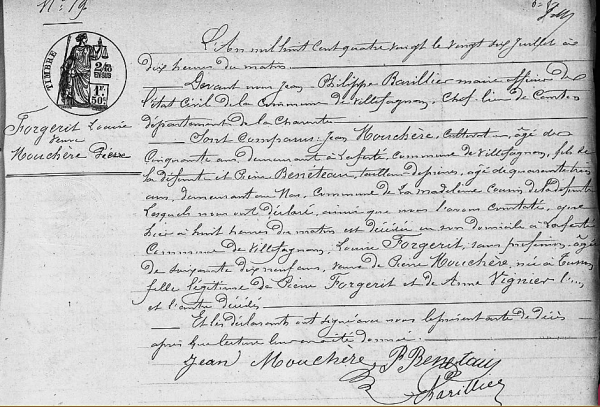 N° 19.
TIMBRE
2/10
EN SUS
1F.
50c
Forgerit Louise
veuve
Mouchère Pierre
L'An mil huit cent quatre vingt le vingt six Juillet à
dix heures du matin
Devant nous Jean Philippe Barillier maire officier de
l'état Civil de la Commune de Villefagnan, Chef-lieu de Canton
département de la Charente
Sont comparus: Jean Mouchère, Cultivateur, âgé de
Cinquante ans, demeurant à Laferté, Commune de Villefagnan, fils de
la défunte et Pierre Beneteau, tailleur de pierres, âgé de quarante trois
ans, demeurant au Commune de La Madeleine Cousin de la défunte
Lesquels nous ont déclaré, ainsi que nous l'avons constaté, que
hier à huit heures du matin est décédée en son domicile à Laferté
Commune de Villefagnan, Louise Forgerit, sans profession, âgée
de soixante dix neuf ans, veuve de Pierre Mouchère, née à
fille légitime de Pierre Forgerit et de Anne Vignier l'un
et l'autre décédés
Et les déclarants ont signé avec nous le présent acte de décès
après que lecture leur en a été donnée.
Jean Mouchère P Beneteau
Barillier